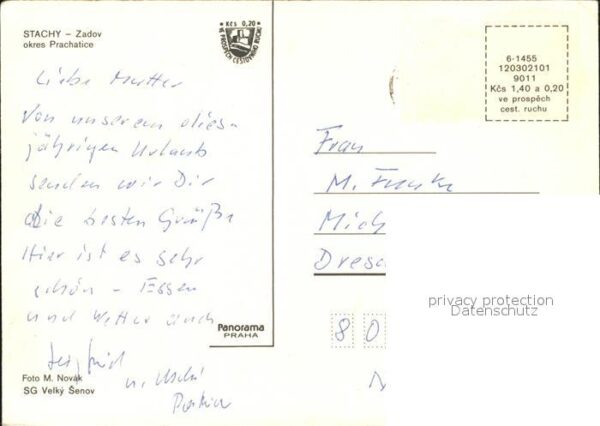 STACHY – Zadov
okres Prachatice
Kčs 0,20
VE PROSPĚCH CESTOVNÍHO RUCHU
6-1455
120302101
9011
Kčs 1,40 a 0,20
ve prospěch
cest. ruchu
Liebe Mutter
Von unserem dies-
jährigen Urlaub
senden wir Dir
die besten Grüße
Hier ist es sehr
schön – Essen
und Wetter auch
Panorama
PRAHA
Foto M. Novák
SG Velký Šenov
Frau
M. Funke
Mich
Dresd
80
privacy protection
Datenschutz